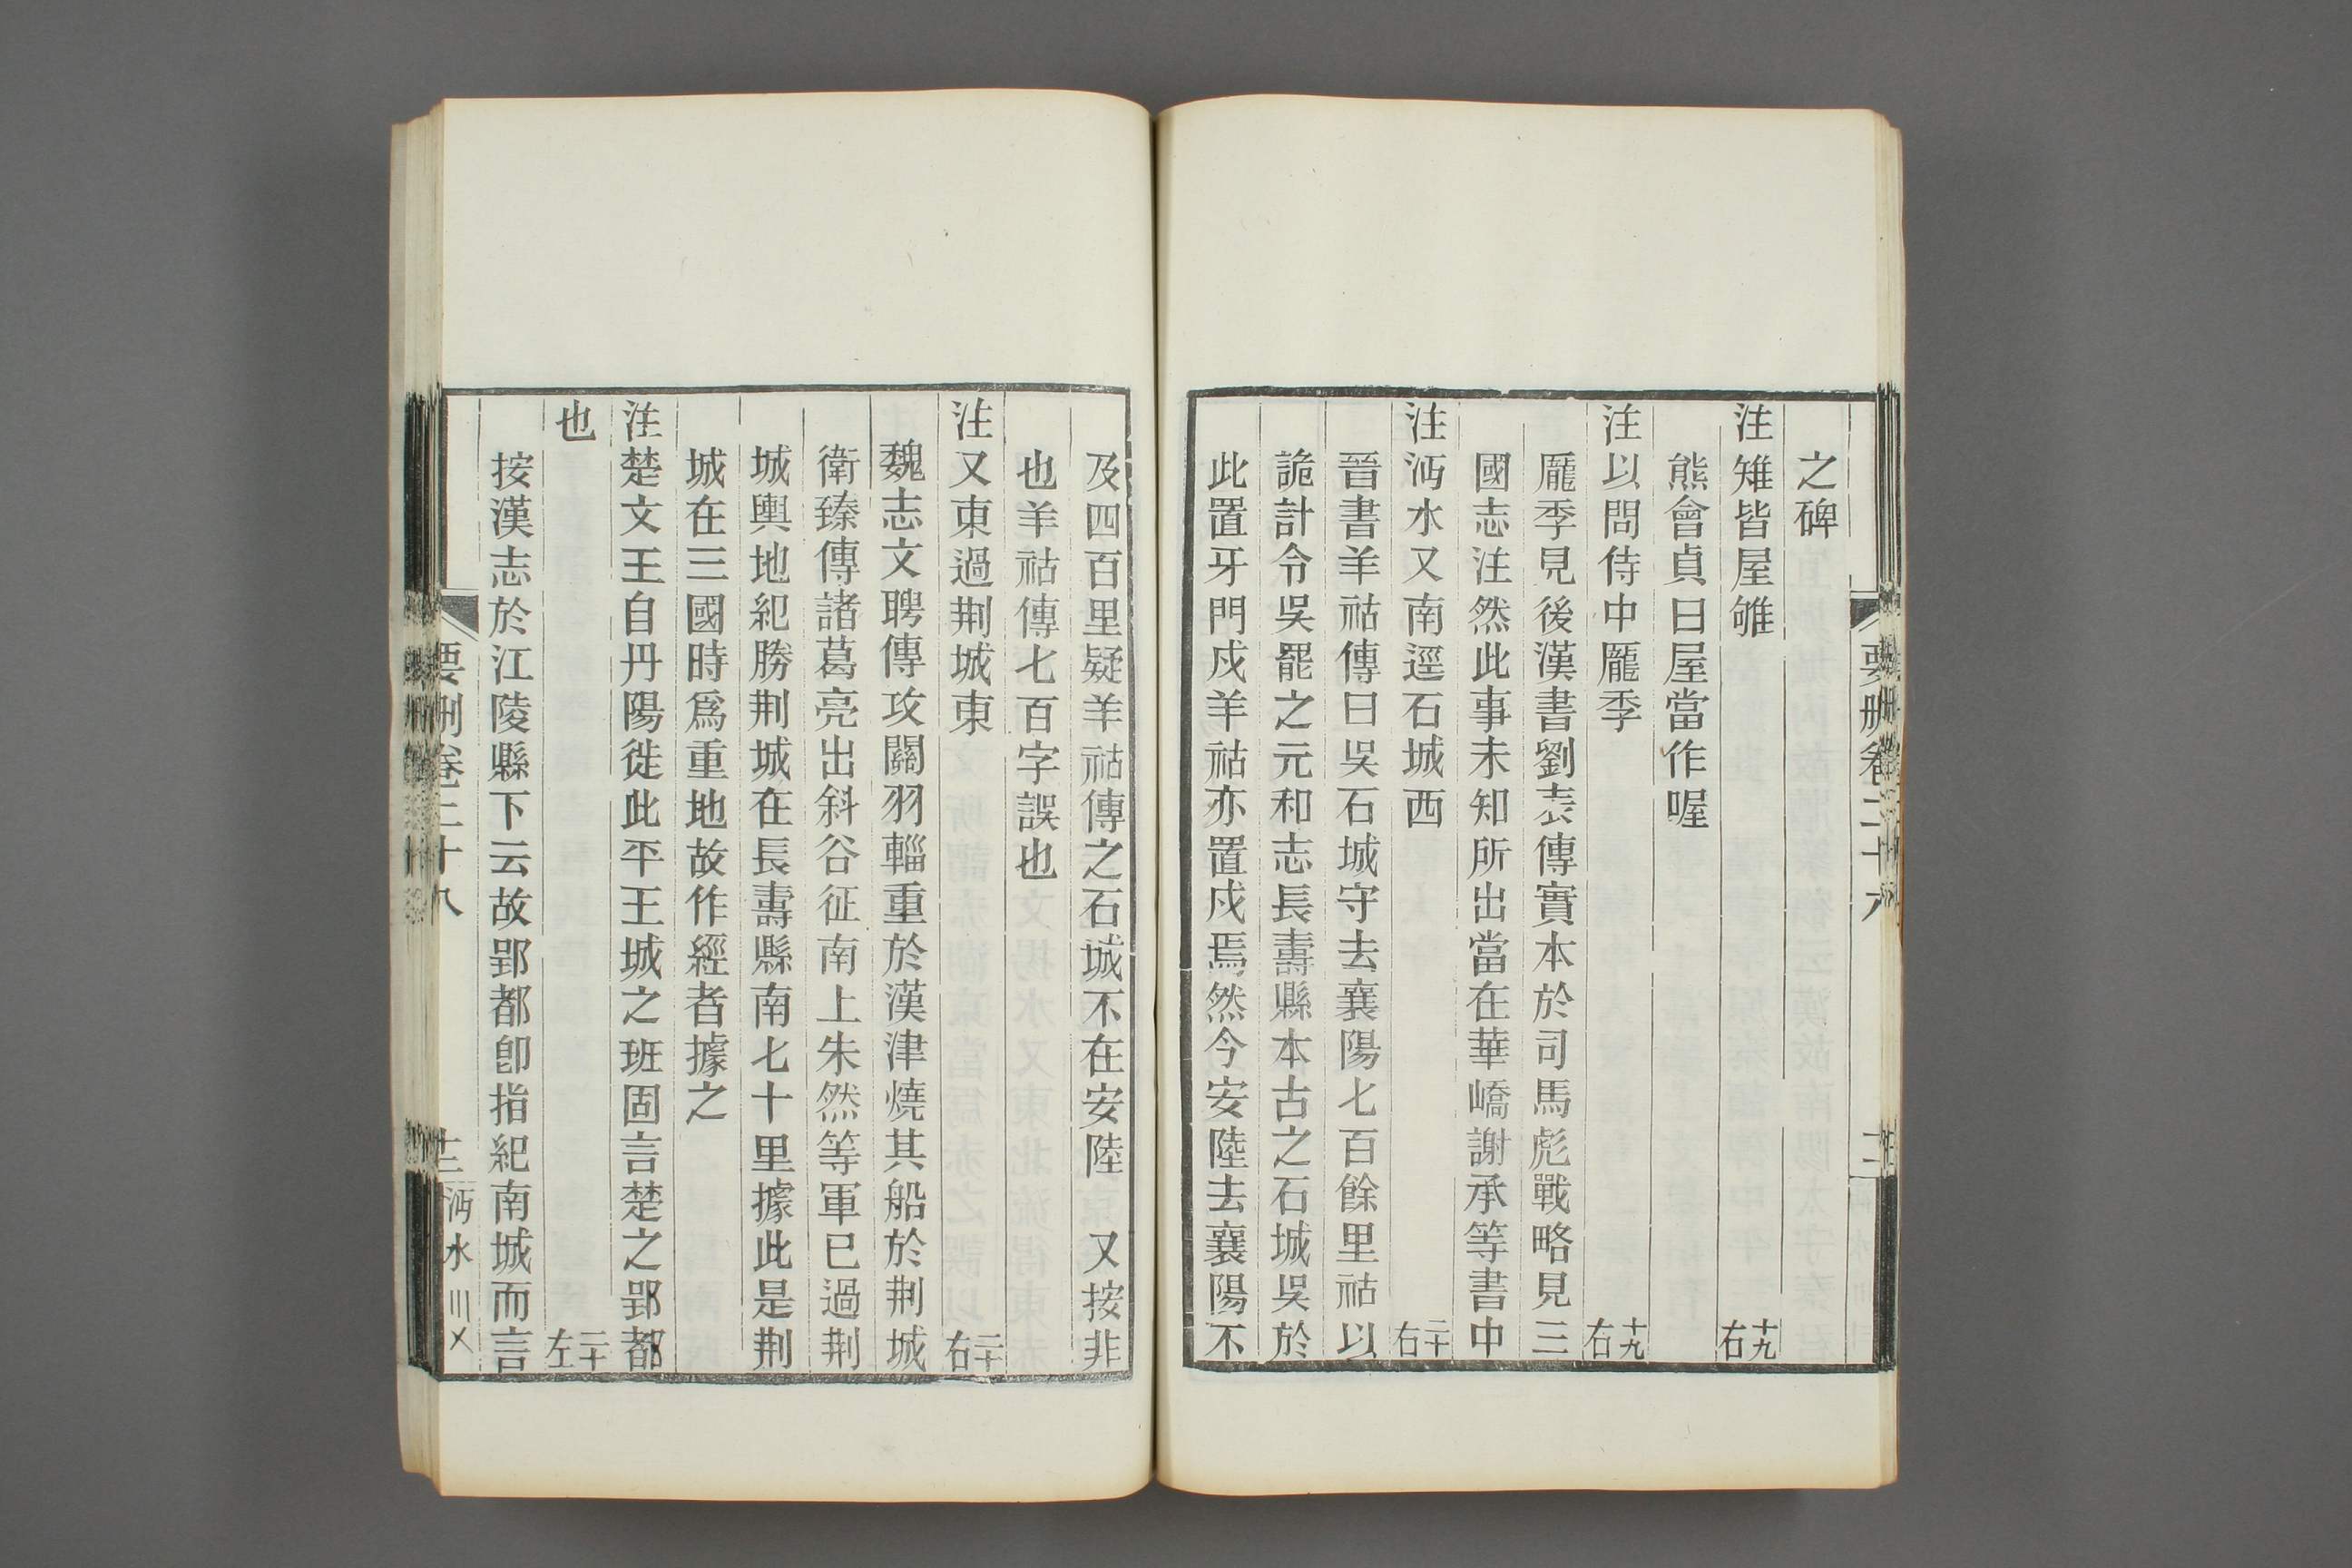 之碑
注雉皆屋雊 十九右
熊會貞曰屋當作喔
注以問侍中龐季 十九右
龐季見後漢書劉表傳實本於司馬彪戰略見三
國志注然此事未知所出當在華嶠謝承等書中
注沔水又南逕石城西 二十右
晉書羊祜傳曰吳石城守去襄陽七百餘里祜以
詭計令吳罷之元和志長壽縣本古之石城吳於
此置牙門戍羊祜亦置戍焉然今安陸去襄陽不
及四百里疑羊祜傳之石城不在安陸 又按非
也羊祜傳七百字誤也
注又東過荆城東 二十右
魏志文聘傳攻關羽輜重於漢津燒其船於荆城
衛臻傳諸葛亮出斜谷征南上朱然等軍已過荆
城輿地紀勝荆城在長壽縣南七十里據此是荆
城在三國時爲重地故作經者據之
注楚文王自丹陽徙此平王城之班固言楚之郢都
也 二十左
按漢志於江陵縣下云故郢都卽指紀南城而言
要刪卷二十八
沔水